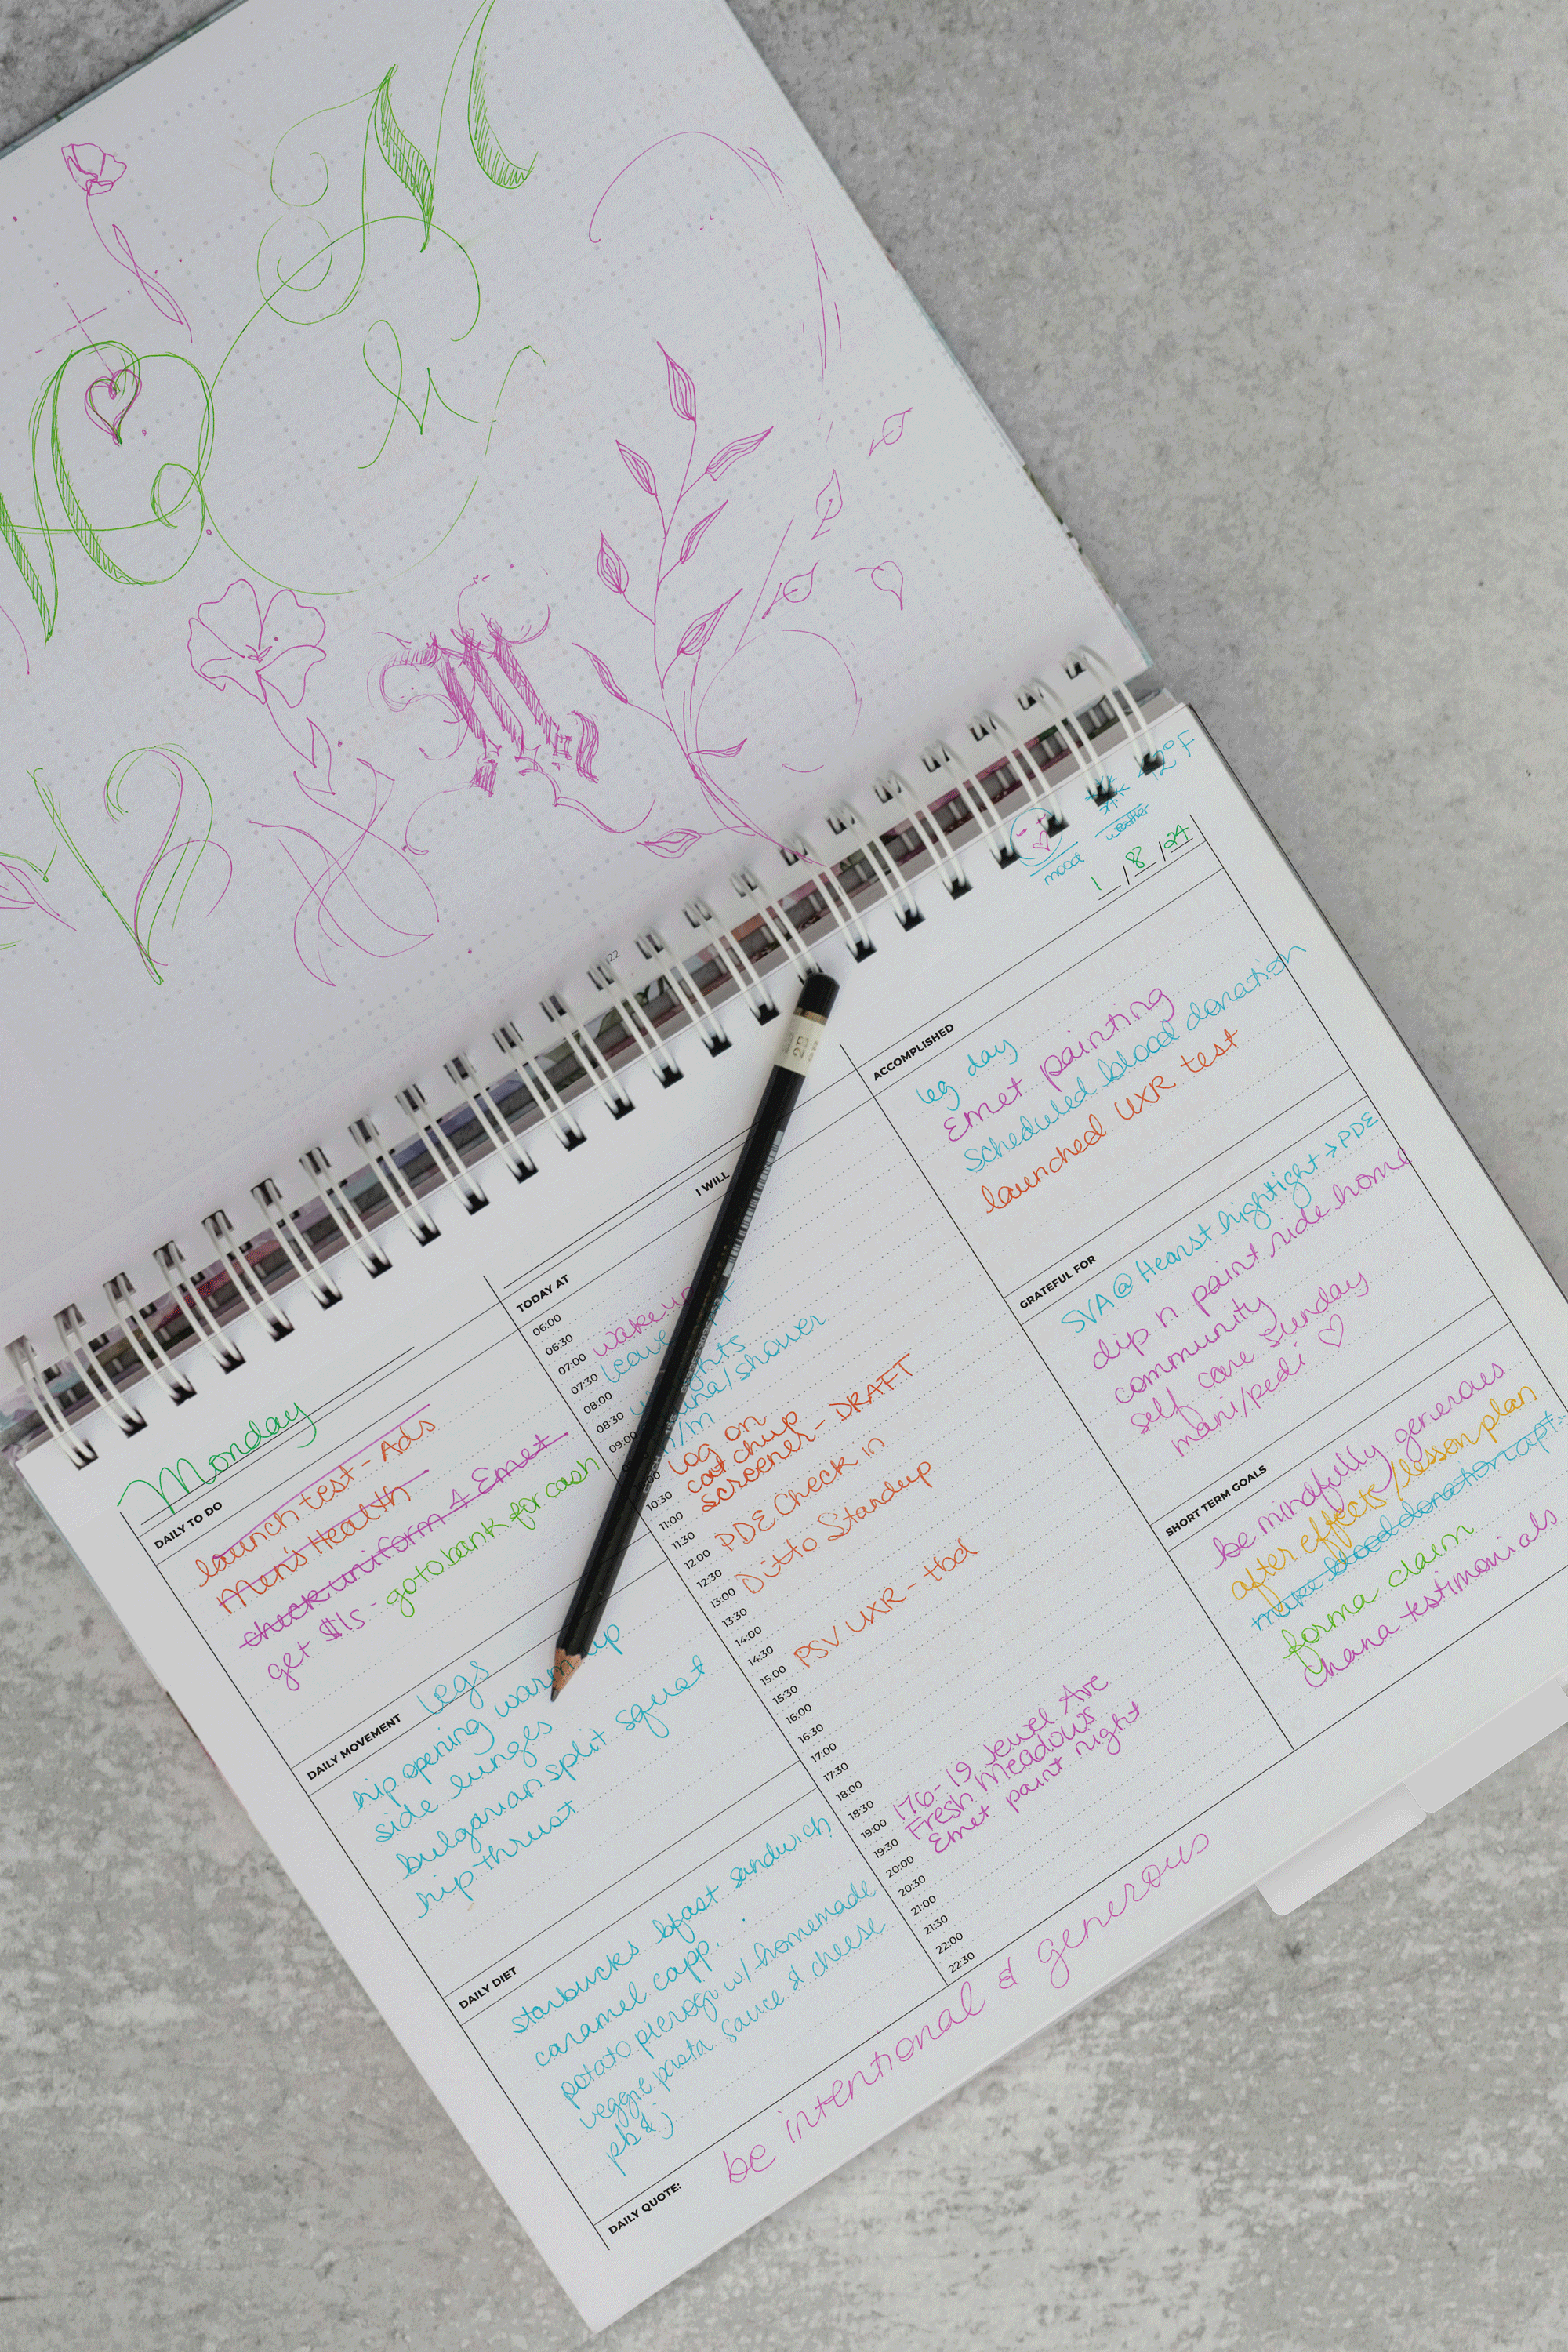 M
h
M
22
42°F
mood
weather
1/8/24
Monday
DAILY TO DO
launch test - Ads
Men's Health
check uniform 4 Emet
get $1s - go to bank for cash
DAILY MOVEMENT
legs
hip opening warm up
side lunges
bulgarian split squat
hip thrust
DAILY DIET
starbucks bfast sandwich
caramel capp.
potato pierogi w/ homemade
veggie pasta sauce & cheese
pb&j
DAILY QUOTE:
be intentional & generous
I WILL
TODAY AT
06:00
06:30
07:00 wake up
07:30 leave
08:00
08:30 /shower
09:00
log on
10:30 catchup
11:00 screener - DRAFT
11:30
12:00 PDE Check in
12:30
13:00 Ditto Standup
13:30
14:00
14:30
15:00 PSV UXR - Hod
15:30
16:00
16:30
17:00
17:30
18:00
18:30
19:00 176-19 Jewel Ave
19:30 Fresh Meadows
20:00 Emet paint night
20:30
21:00
21:30
22:00
22:30
ACCOMPLISHED
leg day
Emet painting
scheduled blood donation
launched UXR test
GRATEFUL FOR
SVA @ Hearst highlight → PDE
dip n paint ride home
community
self care Sunday
mani/pedi ♡
SHORT TERM GOALS
be mindfully generous
after effects/lesson plan
make blood donation apt.
forma claim
chana testimonials